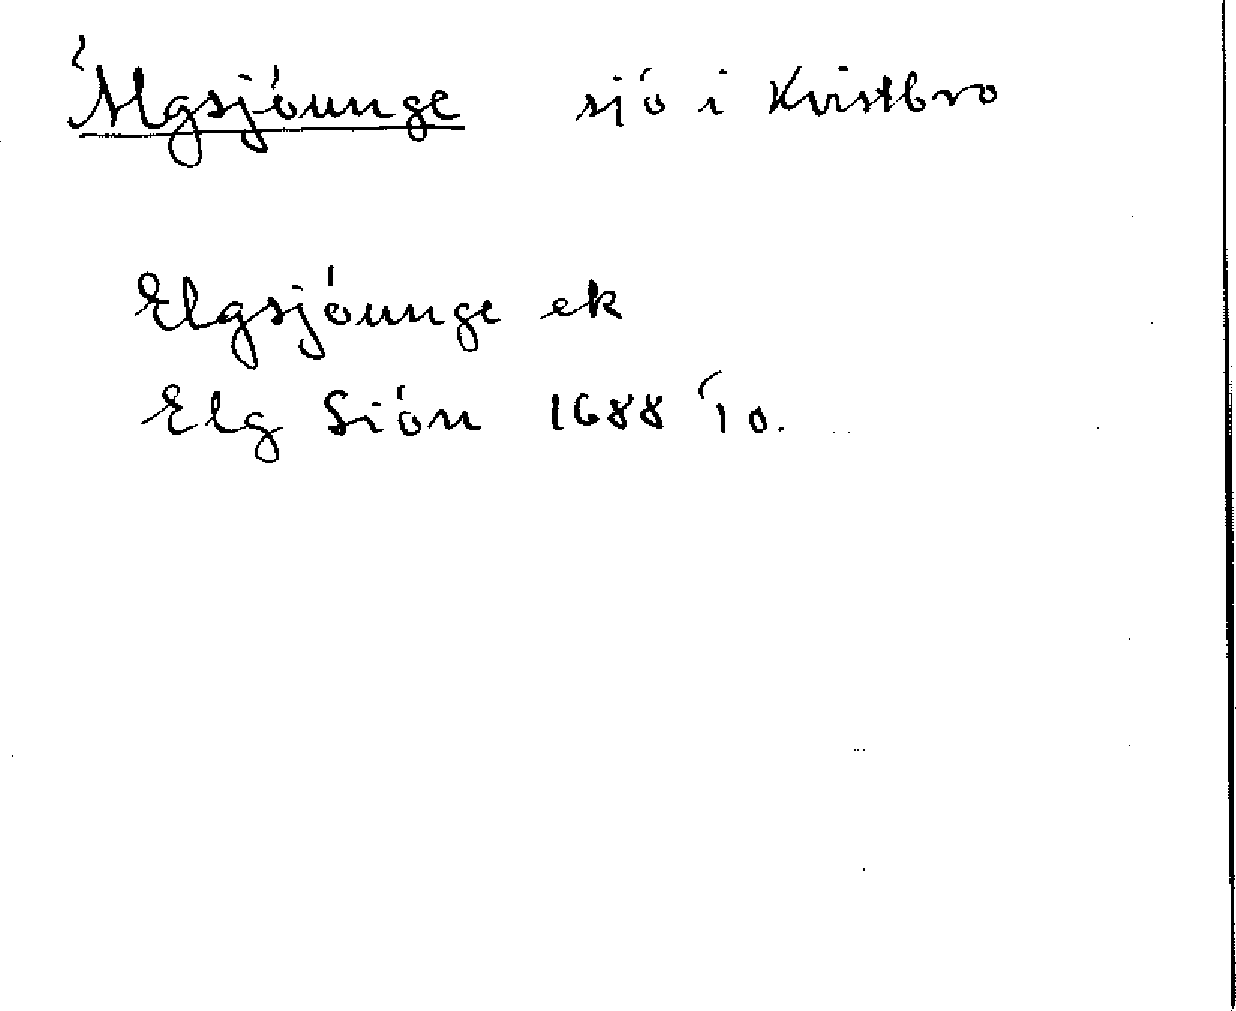 Älgsjöunge sjö i Kvistbro
Elgsjöunge ek
Elg Siön 1688 10.